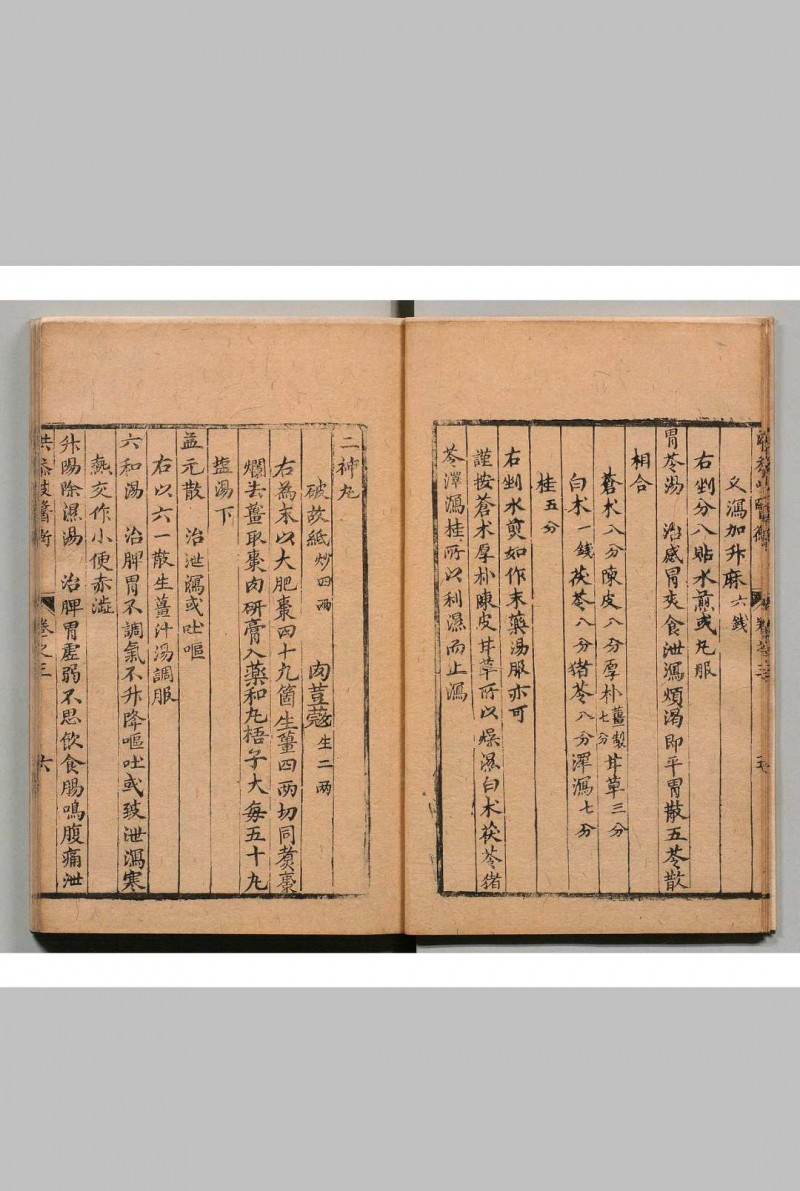 又瀉加升麻六錢
右剉分八貼水煎或丸服
胃苓湯　治感胃夾食泄瀉煩渴即平胃散五苓散
相合
蒼朮八分陳皮八分厚朴薑製七分甘草三分
白朮一錢茯苓八分猪苓八分澤瀉七分
桂五分
右剉水煎如作末藥湯服亦可
謹按蒼朮厚朴陳皮甘草所以燥濕白朮茯苓猪
苓澤瀉桂所以利濕而止瀉
二神丸
破故紙炒四兩　肉荳蔻生二兩
右為末以大肥棗四十九箇生薑四兩切同煑棗
爛去薑取棗肉研膏入藥和丸梧子大每五十九
塩湯下
益元散　治泄瀉或吐嘔
右以六一散生薑汁湯調服
六和湯　治脾胃不調氣不升降嘔吐或致泄瀉寒
熱交作小便赤澁
升陽除濕湯　治脾胃虛弱不思飲食腸鳴腹痛泄
卷之三　六